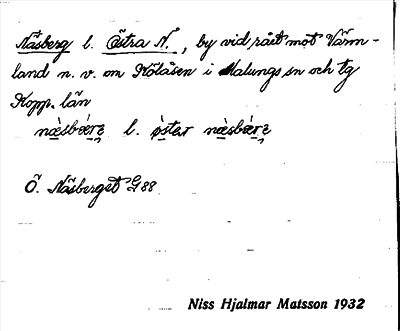 Näsberg l. Östra N., by vid rået mot Värm-
land n. v. om Kölåsen i Malungs sn och tg
Kopp. län
næ̀sbær̀e l. øster næ̀sbær̀e
Ö. Näsberget G 88
Niss Hjalmar Matsson 1932